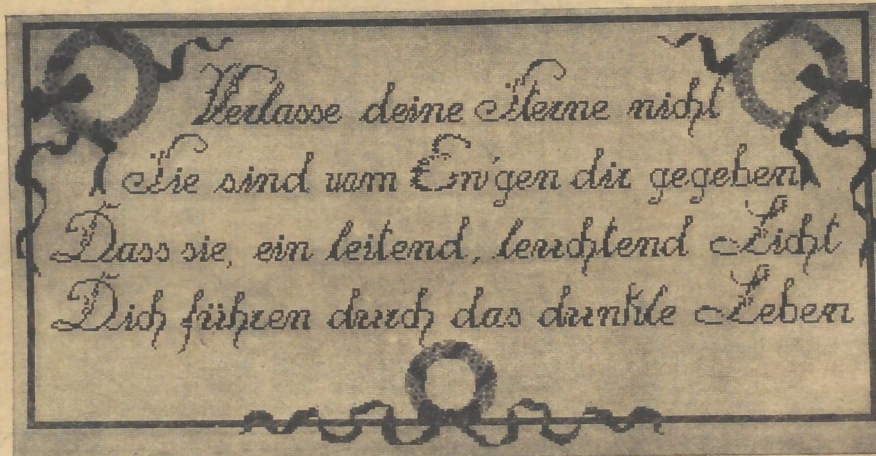 Verlasse deine Sterne nicht
Sie sind vom Ew'gen dir gegeben
Dass sie, ein leitend, leuchtend Licht
Dich führen durch das dunkle Leben